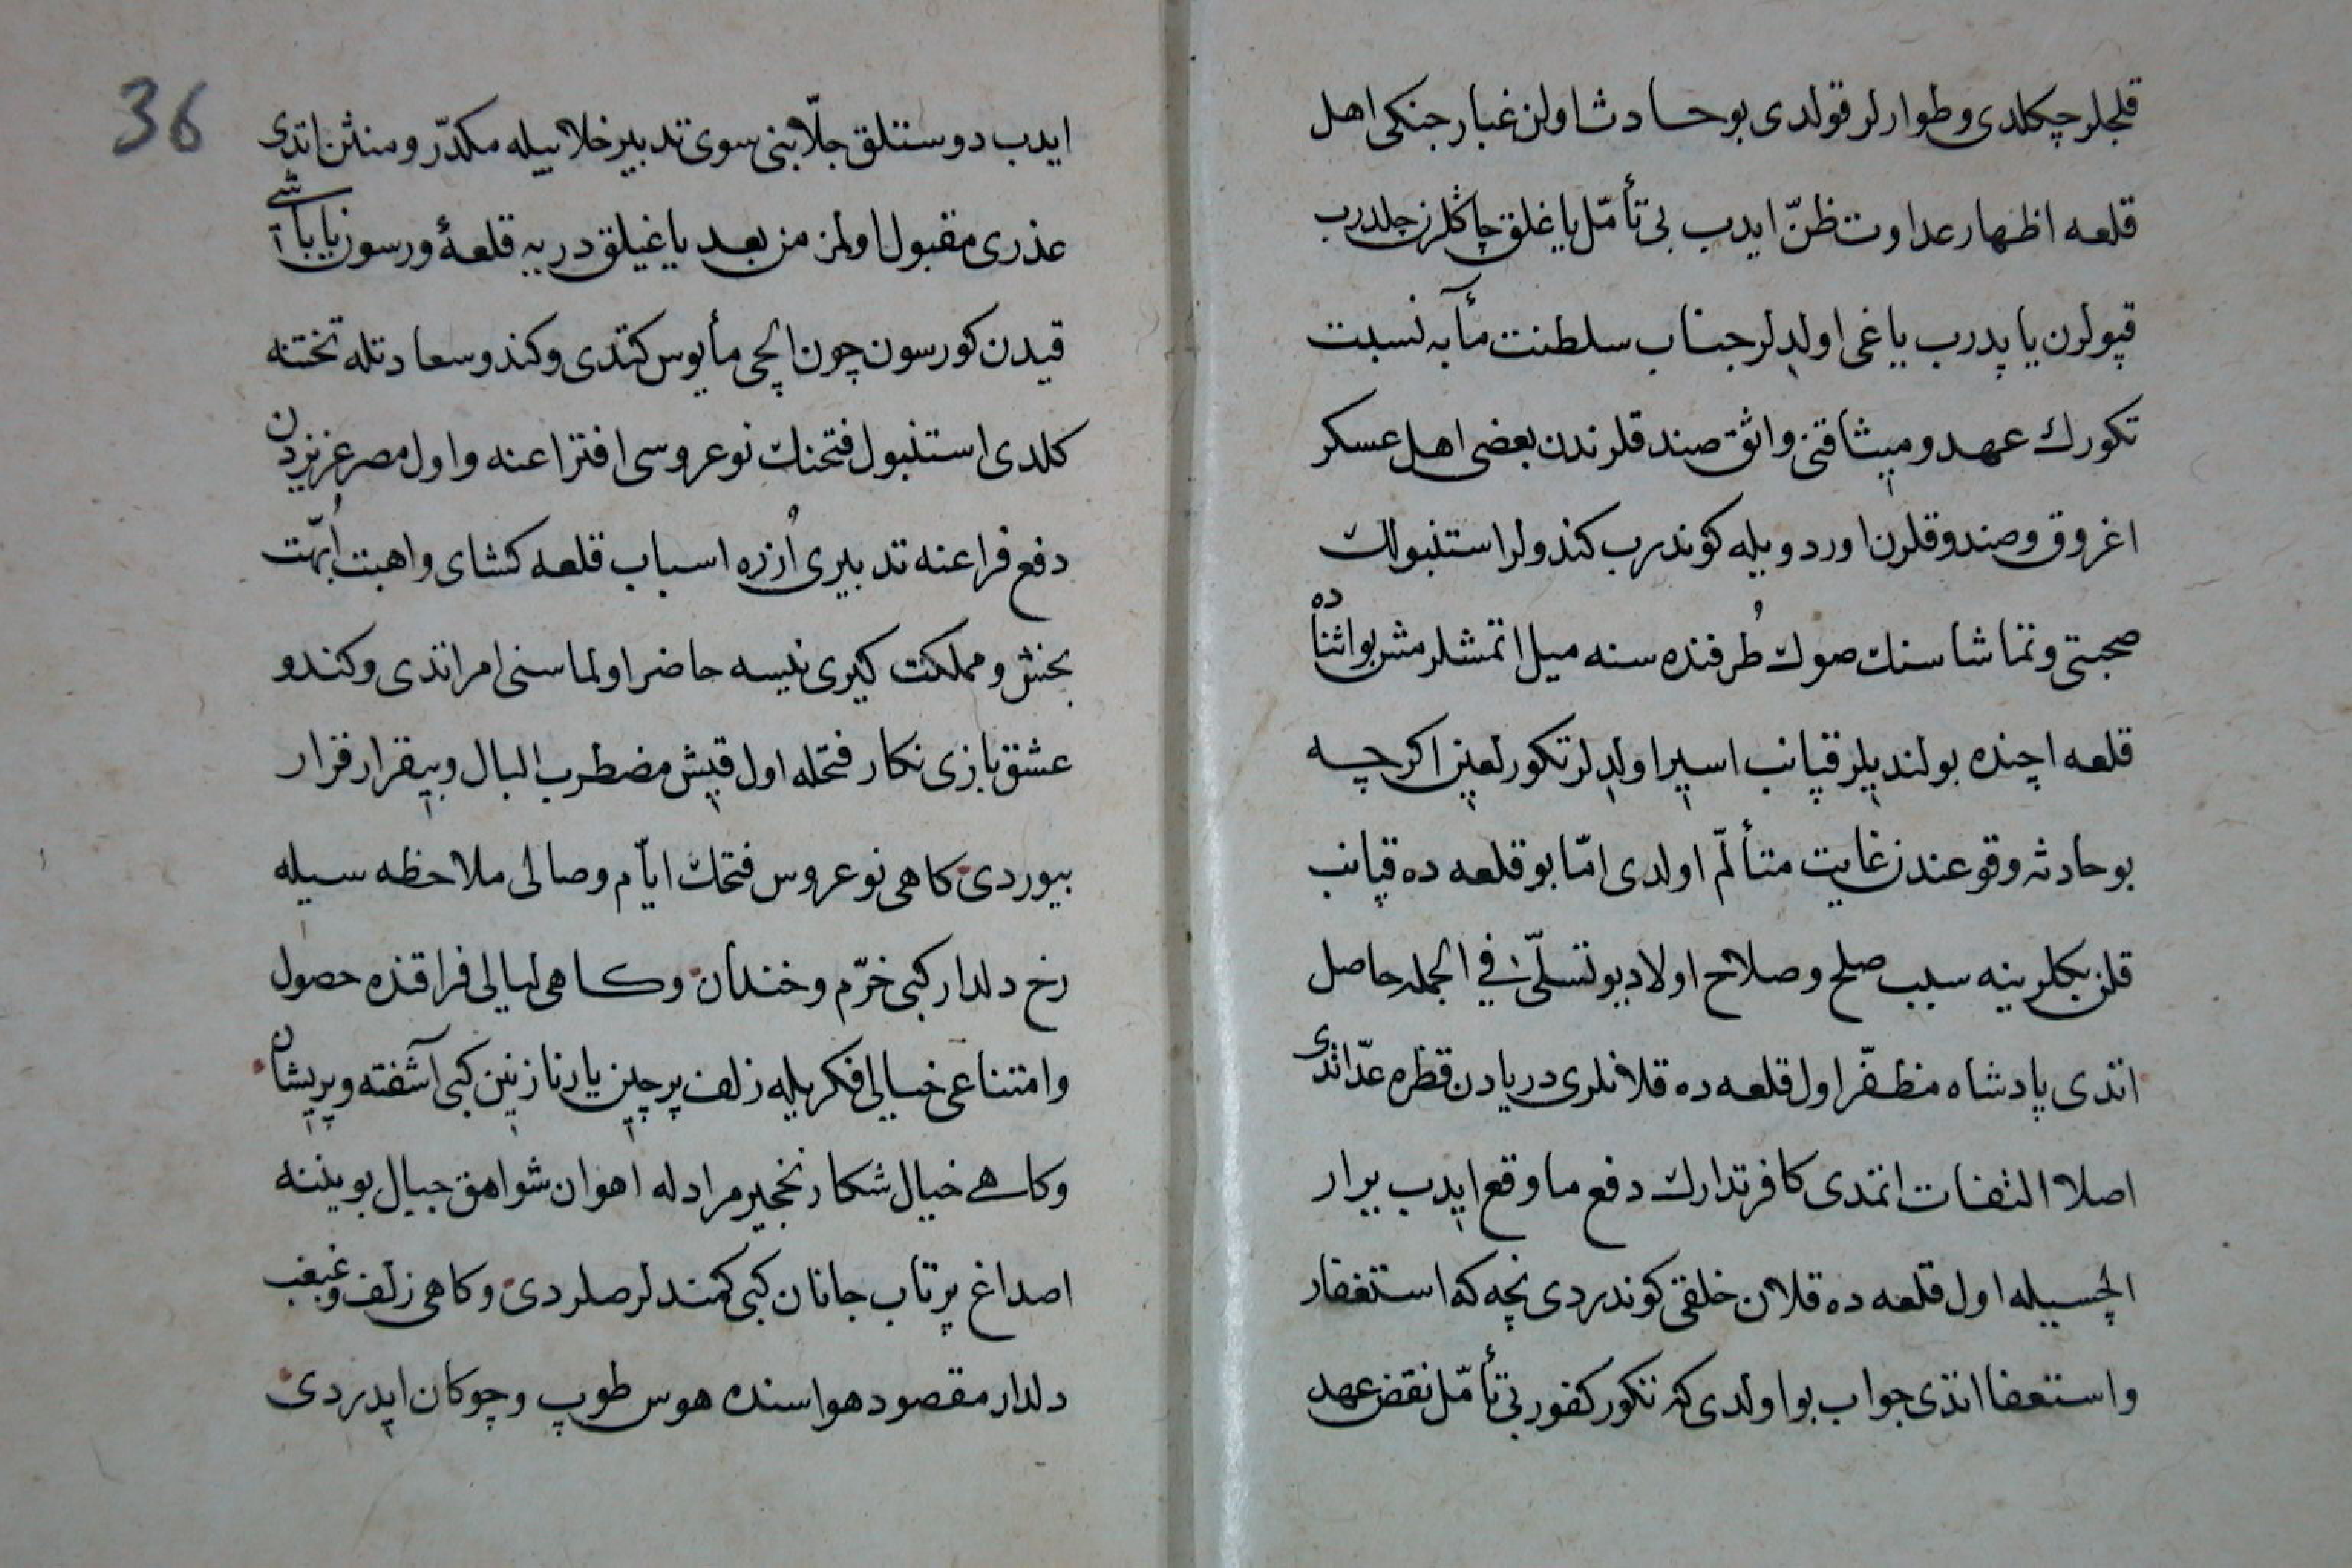 قلجلر چكلدی و طوارلر قولدی بو حادث اولن غبار جنكی اهل
قلعه اظهار عداوت ظنّ ایدب بی تأمّل یاغلق چاڭلرن چلدرب
قپولرن یاپدرب یاغی اولدلر جناب سلطنت مآبه نسبت
تكورك عهد و میثاقنی واثق صندقلرندن بعضی اهل عسكر
اغروق و صندوقلرن اوردویله كوندرب كندولر استنبولك
صحبتی و تماشاسنك صوك طرفنده سنه میل اتمشلرمش بو اثناده
قلعه اچنده بولندیلر قپانب اسیر اولدلر تكور لعین اكرچه
بو حادثه وقوعندن غایت متألّم اولدی امّا بو قلعه ده قپانب
قلن بكلرینه سبب صلح و صلاح اولا دیو تسلّیٔ فی الجمله حاصل
اتدی پادشاه مظفّر اول قلعه ده قلانلری دریادن قطره عدّ اتدی
اصلا التفات اتمدی كافر تدارك دفع ما وقع ایدب برار
الچسیله اول قلعه ده قلان خلقی كوندردی نچه كه استغفار
و استعفا اتدی جواب بو اولدی كه تكور كفور بی تأمّل نقض عهد
36
ایدب دوستلق جلّابنی سوی تدبیر خلابیله مكدّر و منتن اتدی
عذری مقبول اولمز من بعد یاغیلق دریه قلعهٔ ورسون یا باشی
قیدن كورسون چون الچی مأیوس كتدی و كندو سعادتله تختنه
كلدی استنبول فتحنك نوعروسی افتراعنه و اول مصر عزیزدن
دفع فراعنه تدبیری اُزره اسباب قلعه كشای و اهبت اُبّهت
بخش و مملكت كیری نیسه حاضر اولماسنی امر اتدی و كندو
عشق بازی نكار فتحله اول قیش مضطرب البال و بیقرار قرار
بیوردی كاهی نوعروس فتحك ایّام وصالی ملاحظه سیله
رخ دلدار كبی خرّم و خندان و كاهی لیالی فراقنده حصول
و امتناعی خیالی فكریله زلف پرچین یار نازنین كبی آشفته و پریشان
و كاهی خیال شكار نخجیر مرادله اهوان شواهق جبال بویننه
اصداغ پرتاب جانان كبی كمندلر صلردی و كاهی زلف و غبغب
دلدار مقصود هواسنده هوس طوپ و چوكان ایدردی